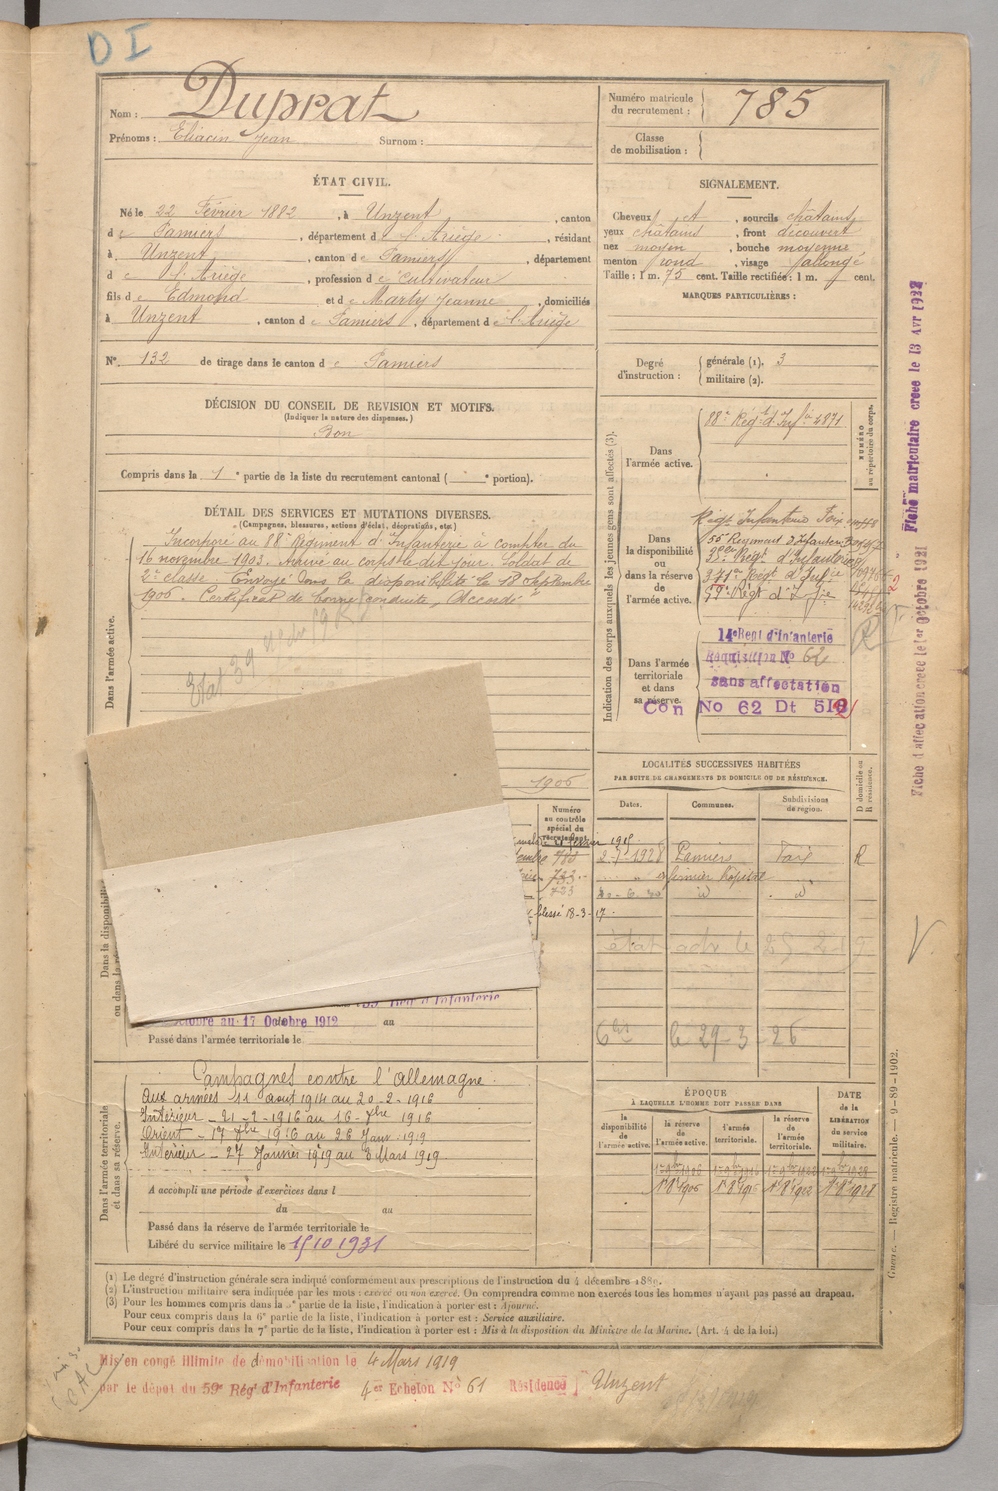 DI
Nom : Duprat
Prénoms : Eliacin Jean Surnom :
Numéro matricule du recrutement : 785
Classe de mobilisation :
ÉTAT CIVIL.
Né le 22 Février 1882, à Unzent, canton
de Pamiers, département de l'Ariège, résidant
à Unzent, canton de Pamiers, département
de l'Ariège, profession de Cultivateur
fils de Edmond et de Marty Jeanne, domiciliés
à Unzent, canton de Pamiers, département de l'Ariège
N° 132 de tirage dans le canton de Pamiers
SIGNALEMENT.
Cheveux et, sourcils châtains
yeux châtains, front découvert
nez moyen, bouche moyenne
menton rond, visage allongé
Taille : 1 m. 75 cent. Taille rectifiée : 1 m. cent.
MARQUES PARTICULIÈRES :
Degré d'instruction : générale (1). 3
militaire (2).
DÉCISION DU CONSEIL DE REVISION ET MOTIFS.
(Indiquer la nature des dispenses.)
Bon
Compris dans la 1e partie de la liste du recrutement cantonal ( e portion).
DÉTAIL DES SERVICES ET MUTATIONS DIVERSES.
(Campagnes, blessures, actions d'éclat, décorations, etc.)
Dans l'armée active.
Incorporé au 88e Régiment d'Infanterie à compter du
16 novembre 1903. Arrivé au corps le dit jour. Soldat de
2e classe. Envoyé dans la disponibilité le 18 Septembre
1906. Certificat de bonne conduite, Accordé
1906
Indication des corps auxquels les jeunes gens sont affectés (3).
Dans l'armée active.
88e Régt d'Infie 4871
NUMÉRO au répertoire du corps.
Dans la disponibilité ou dans la réserve de l'armée active.
Régt Infanterie Foix
55 Régiment d'Infanterie
Régt d'Infanterie
371e Régt d'Infie
59e Régt d'Infie
Dans l'armée territoriale et dans sa réserve.
14e Regt d'infanterie
Réquisition No 62
sans affectation
Con No 62 Dt 51
R
Fiche matriculaire créée le 13 Avr 1922
Fiche d'affectation créée le 1er Octobre 1921
LOCALITÉS SUCCESSIVES HABITÉES
PAR SUITE DE CHANGEMENTS DE DOMICILE OU DE RÉSIDENCE.
Dates. Communes. Subdivisions de région. D domicile ou R résidence.
Numéro au contrôle spécial du recrutement.
février 1915
2-1-1928 Pamiers Foix R
id
blessé 18-3-17
état adr le
le 29-3-26
Dans la disponibilité
ou dans la
Rég d'Infanterie
octobre au 17 Octobre 1912 au
Passé dans l'armée territoriale le
Dans l'armée territoriale et dans sa réserve.
Campagnes contre l'Allemagne
Aux armées 11 août 1914 au 20-2-1916
Intérieur - 21-2-1916 au 16-7bre 1916
Orient - 17 7bre 1916 au 26 Janv. 1919
Intérieur - 27 Janvier 1919 au 3 Mars 1919
A accompli une période d'exercices dans l
du au
Passé dans la réserve de l'armée territoriale le
Libéré du service militaire le 15 10 1931
ÉPOQUE
À LAQUELLE L'HOMME DOIT PASSER DANS
DATE de la LIBÉRATION du service militaire.
la disponibilité de l'armée active.
la réserve de l'armée active.
l'armée territoriale.
la réserve de l'armée territoriale.
Guerre. — Registre matricule. — 9-89-1902.
(1) Le degré d'instruction générale sera indiqué conformément aux prescriptions de l'instruction du 4 décembre 1889.
(2) L'instruction militaire sera indiquée par les mots : exercé ou non exercé. On comprendra comme non exercés tous les hommes n'ayant pas passé au drapeau.
(3) Pour les hommes compris dans la 5e partie de la liste, l'indication à porter est : Ajourné.
Pour ceux compris dans la 6e partie de la liste, l'indication à porter est : Service auxiliaire.
Pour ceux compris dans la 7e partie de la liste, l'indication à porter est : Mis à la disposition du Ministre de la Marine. (Art. 4 de la loi.)
Mis en congé illimité de démobilisation le 4 Mars 1919
par le dépôt du 59e Rég d'Infanterie 4er Echelon No 61 Résidence Unzent